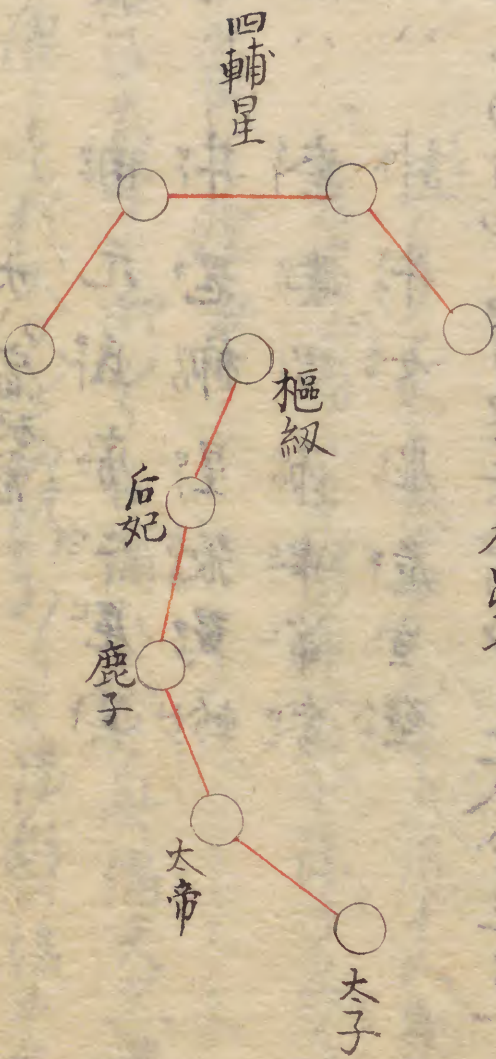 四輔星
樞紐
后妃
鹿子
太帝
太子